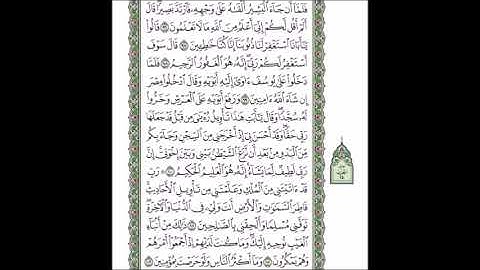 فَلَمَّآ أَن جَآءَ ٱلۡبَشِيرُ أَلۡقَىٰهُ عَلَىٰ وَجۡهِهِۦ فَٱرۡتَدَّ بَصِيرٗاۖ قَالَ
أَلَمۡ أَقُل لَّكُمۡ إِنِّيٓ أَعۡلَمُ مِنَ ٱللَّهِ مَا لَا تَعۡلَمُونَ ٩٦ قَالُواْ
يَٰٓأَبَانَا ٱسۡتَغۡفِرۡ لَنَا ذُنُوبَنَآ إِنَّا كُنَّا خَٰطِـِٔينَ ٩٧ قَالَ سَوۡفَ
أَسۡتَغۡفِرُ لَكُمۡ رَبِّيٓۖ إِنَّهُۥ هُوَ ٱلۡغَفُورُ ٱلرَّحِيمُ ٩٨ فَلَمَّا
دَخَلُواْ عَلَىٰ يُوسُفَ ءَاوَىٰٓ إِلَيۡهِ أَبَوَيۡهِ وَقَالَ ٱدۡخُلُواْ مِصۡرَ
إِن شَآءَ ٱللَّهُ ءَامِنِينَ ٩٩ وَرَفَعَ أَبَوَيۡهِ عَلَى ٱلۡعَرۡشِ وَخَرُّواْ
لَهُۥ سُجَّدٗاۖ وَقَالَ يَٰٓأَبَتِ هَٰذَا تَأۡوِيلُ رُءۡيَٰيَ مِن قَبۡلُ قَدۡ جَعَلَهَا
رَبِّي حَقّٗاۖ وَقَدۡ أَحۡسَنَ بِيٓ إِذۡ أَخۡرَجَنِي مِنَ ٱلسِّجۡنِ وَجَآءَ بِكُم
مِّنَ ٱلۡبَدۡوِ مِنۢ بَعۡدِ أَن نَّزَغَ ٱلشَّيۡطَٰنُ بَيۡنِي وَبَيۡنَ إِخۡوَتِيٓۚ إِنَّ
رَبِّي لَطِيفٞ لِّمَا يَشَآءُۚ إِنَّهُۥ هُوَ ٱلۡعَلِيمُ ٱلۡحَكِيمُ ١٠٠ رَبِّ
قَدۡ ءَاتَيۡتَنِي مِنَ ٱلۡمُلۡكِ وَعَلَّمۡتَنِي مِن تَأۡوِيلِ ٱلۡأَحَادِيثِۚ
فَاطِرَ ٱلسَّمَٰوَٰتِ وَٱلۡأَرۡضِ أَنتَ وَلِيِّۦ فِي ٱلدُّنۡيَا وَٱلۡأٓخِرَةِۖ
تَوَفَّنِي مُسۡلِمٗا وَأَلۡحِقۡنِي بِٱلصَّٰلِحِينَ ١٠١ ذَٰلِكَ مِنۡ أَنۢبَآءِ
ٱلۡغَيۡبِ نُوحِيهِ إِلَيۡكَۖ وَمَا كُنتَ لَدَيۡهِمۡ إِذۡ أَجۡمَعُوٓاْ أَمۡرَهُمۡ
وَهُمۡ يَمۡكُرُونَ ١٠٢ وَمَآ أَكۡثَرُ ٱلنَّاسِ وَلَوۡ حَرَصۡتَ بِمُؤۡمِنِينَ ١٠٣